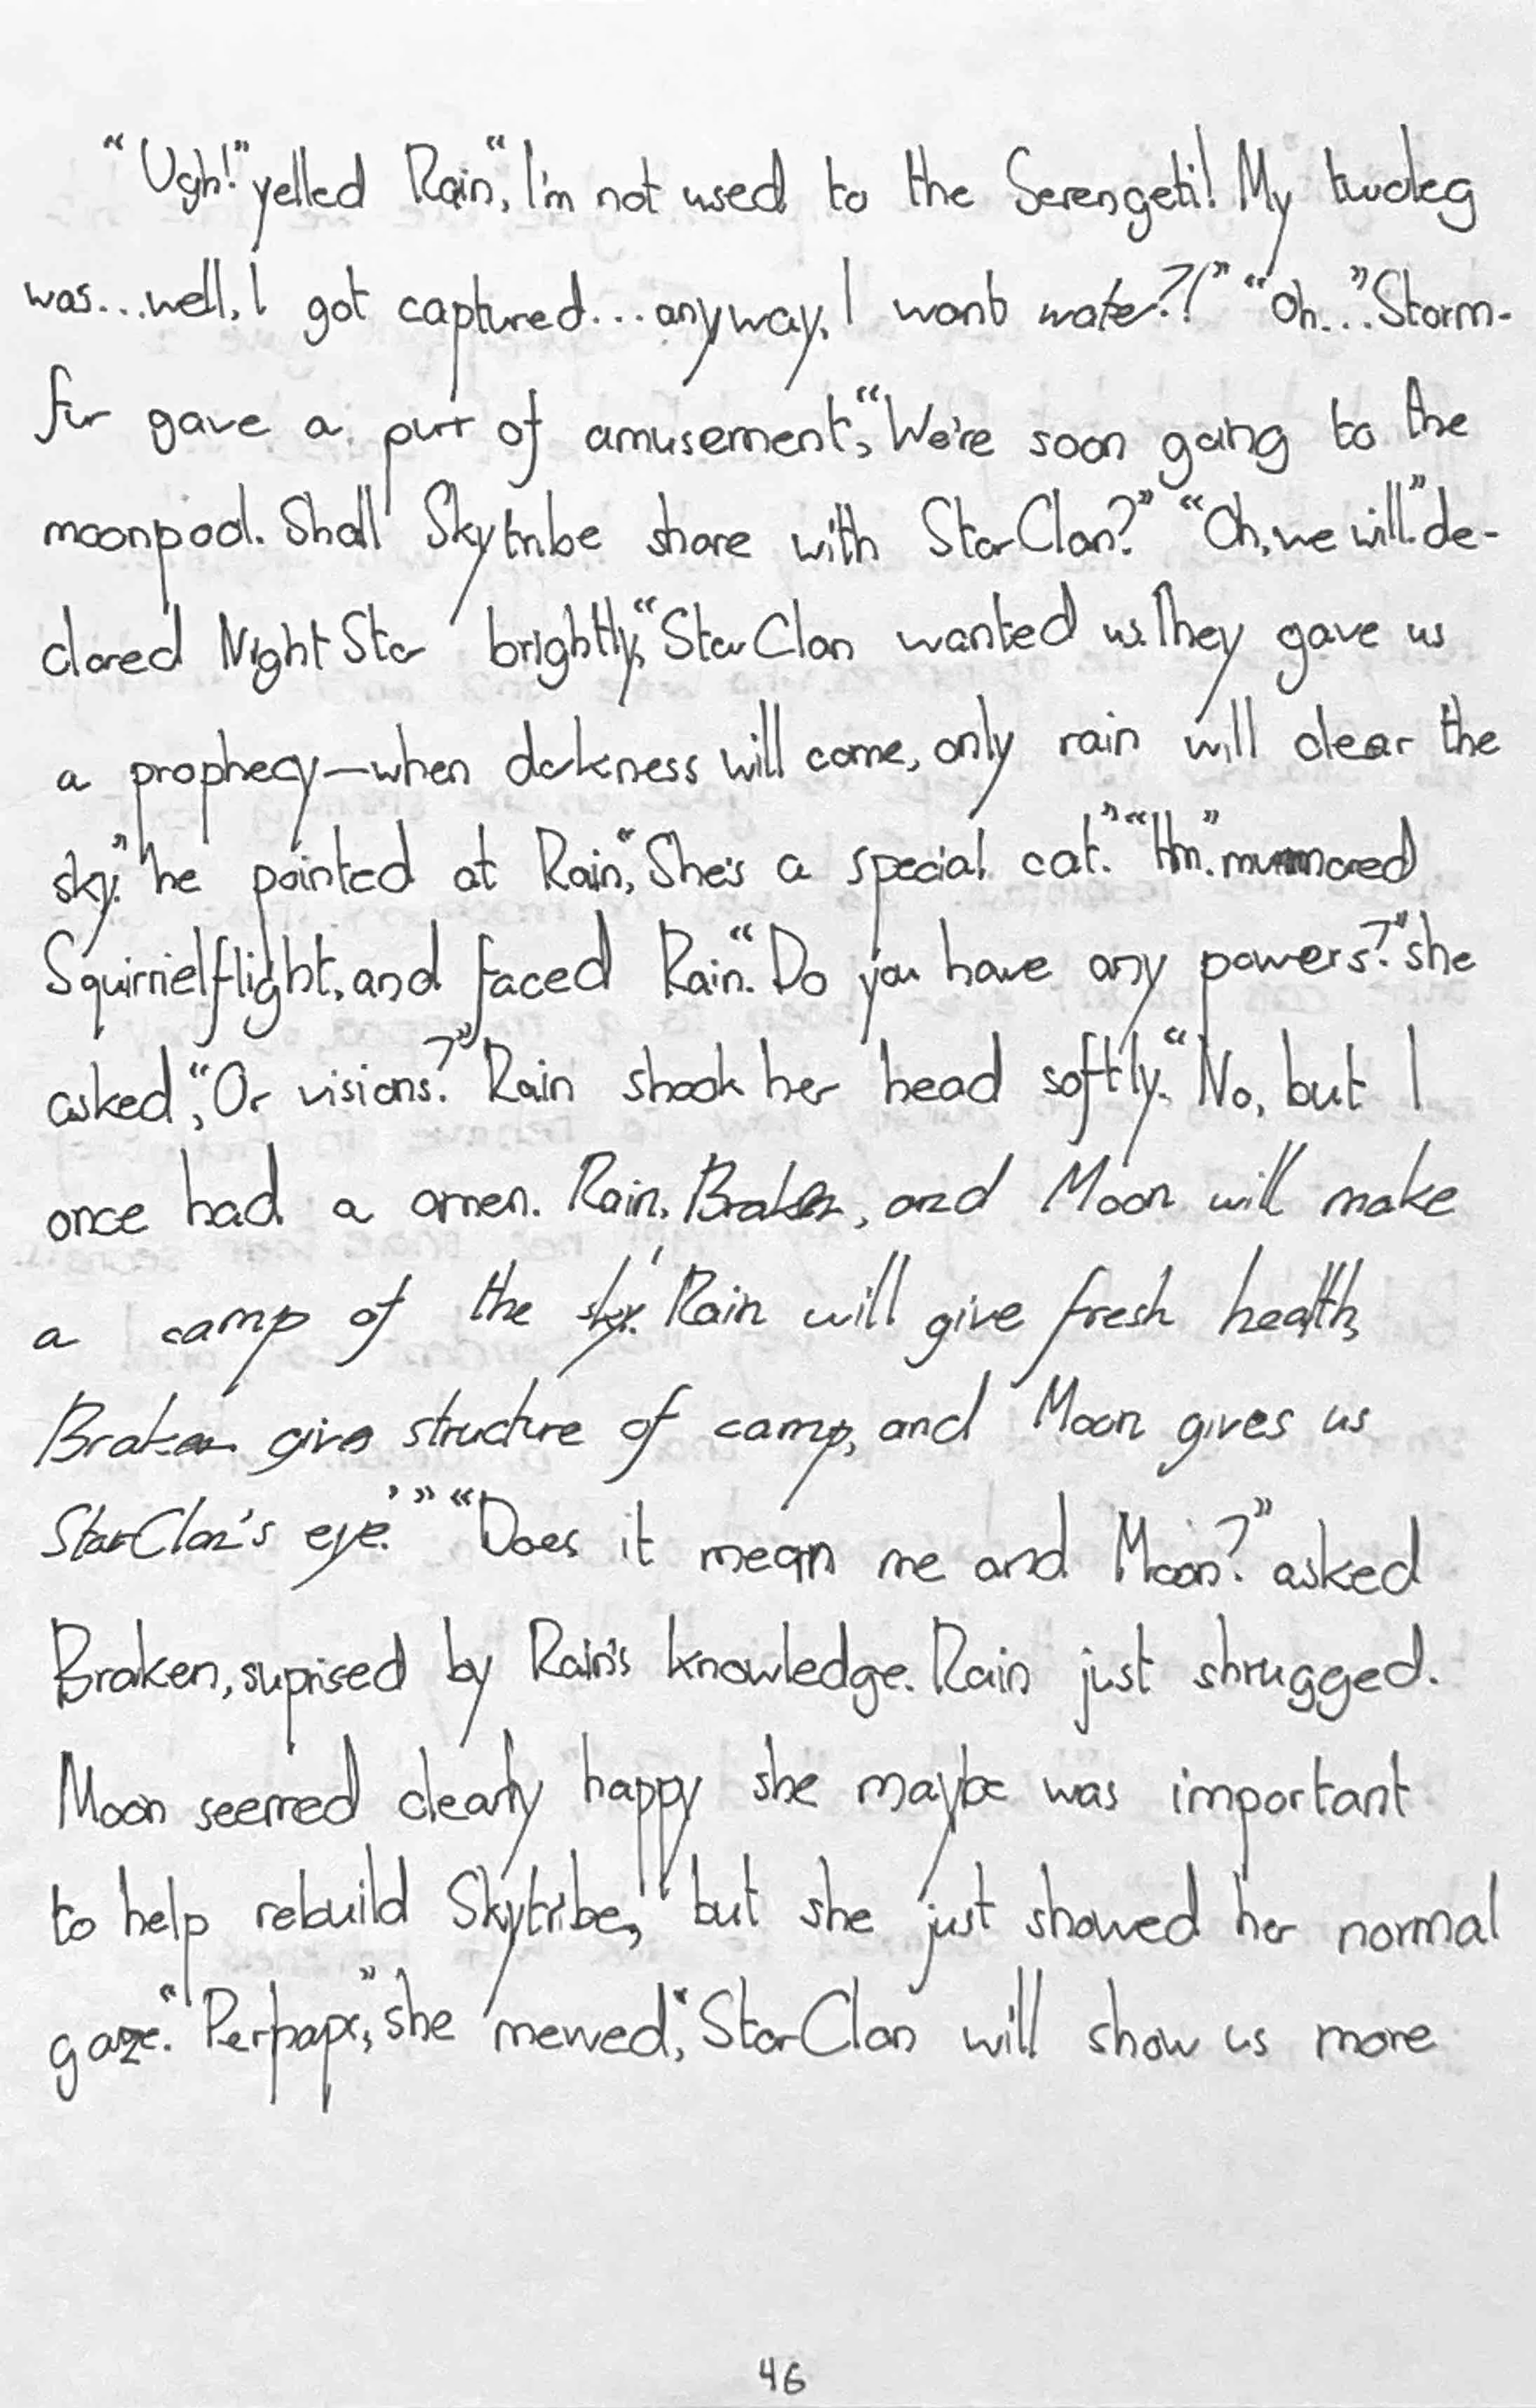 “Ugh!” yelled Rain, “I'm not used to the Serengeti! My twoleg
was...well, I got captured...anyway, I want water?!” “Oh...” Storm-
fur gave a purr of amusement, “We're soon going to the
moonpool. Shall Skytribe share with StarClan?” “Oh, we will.” de-
clared NightStar brightly, “StarClan wanted us. They gave us
a prophecy—when darkness will come, only rain will clear the
sky.” he pointed at Rain, “She's a special cat.” “Hm.” murmored
Squirrielflight, and faced Rain. “Do you have any powers?” she
asked, “Or visions?” Rain shook her head softly. “No, but I
once had a omen. Rain, Braken, and Moon will make
a camp of the sky. ‘Rain will give fresh health,
Braken give structure of camp, and Moon gives us
StarClan's eye.’” “Does it mean me and Moon?” asked
Braken, suprised by Rain's knowledge. Rain just shrugged.
Moon seemed clearly happy she maybe was important
to help rebuild Skytribe, but she just showed her normal
gaze. “Perhaps,” she mewed, “StarClan will show us more
46